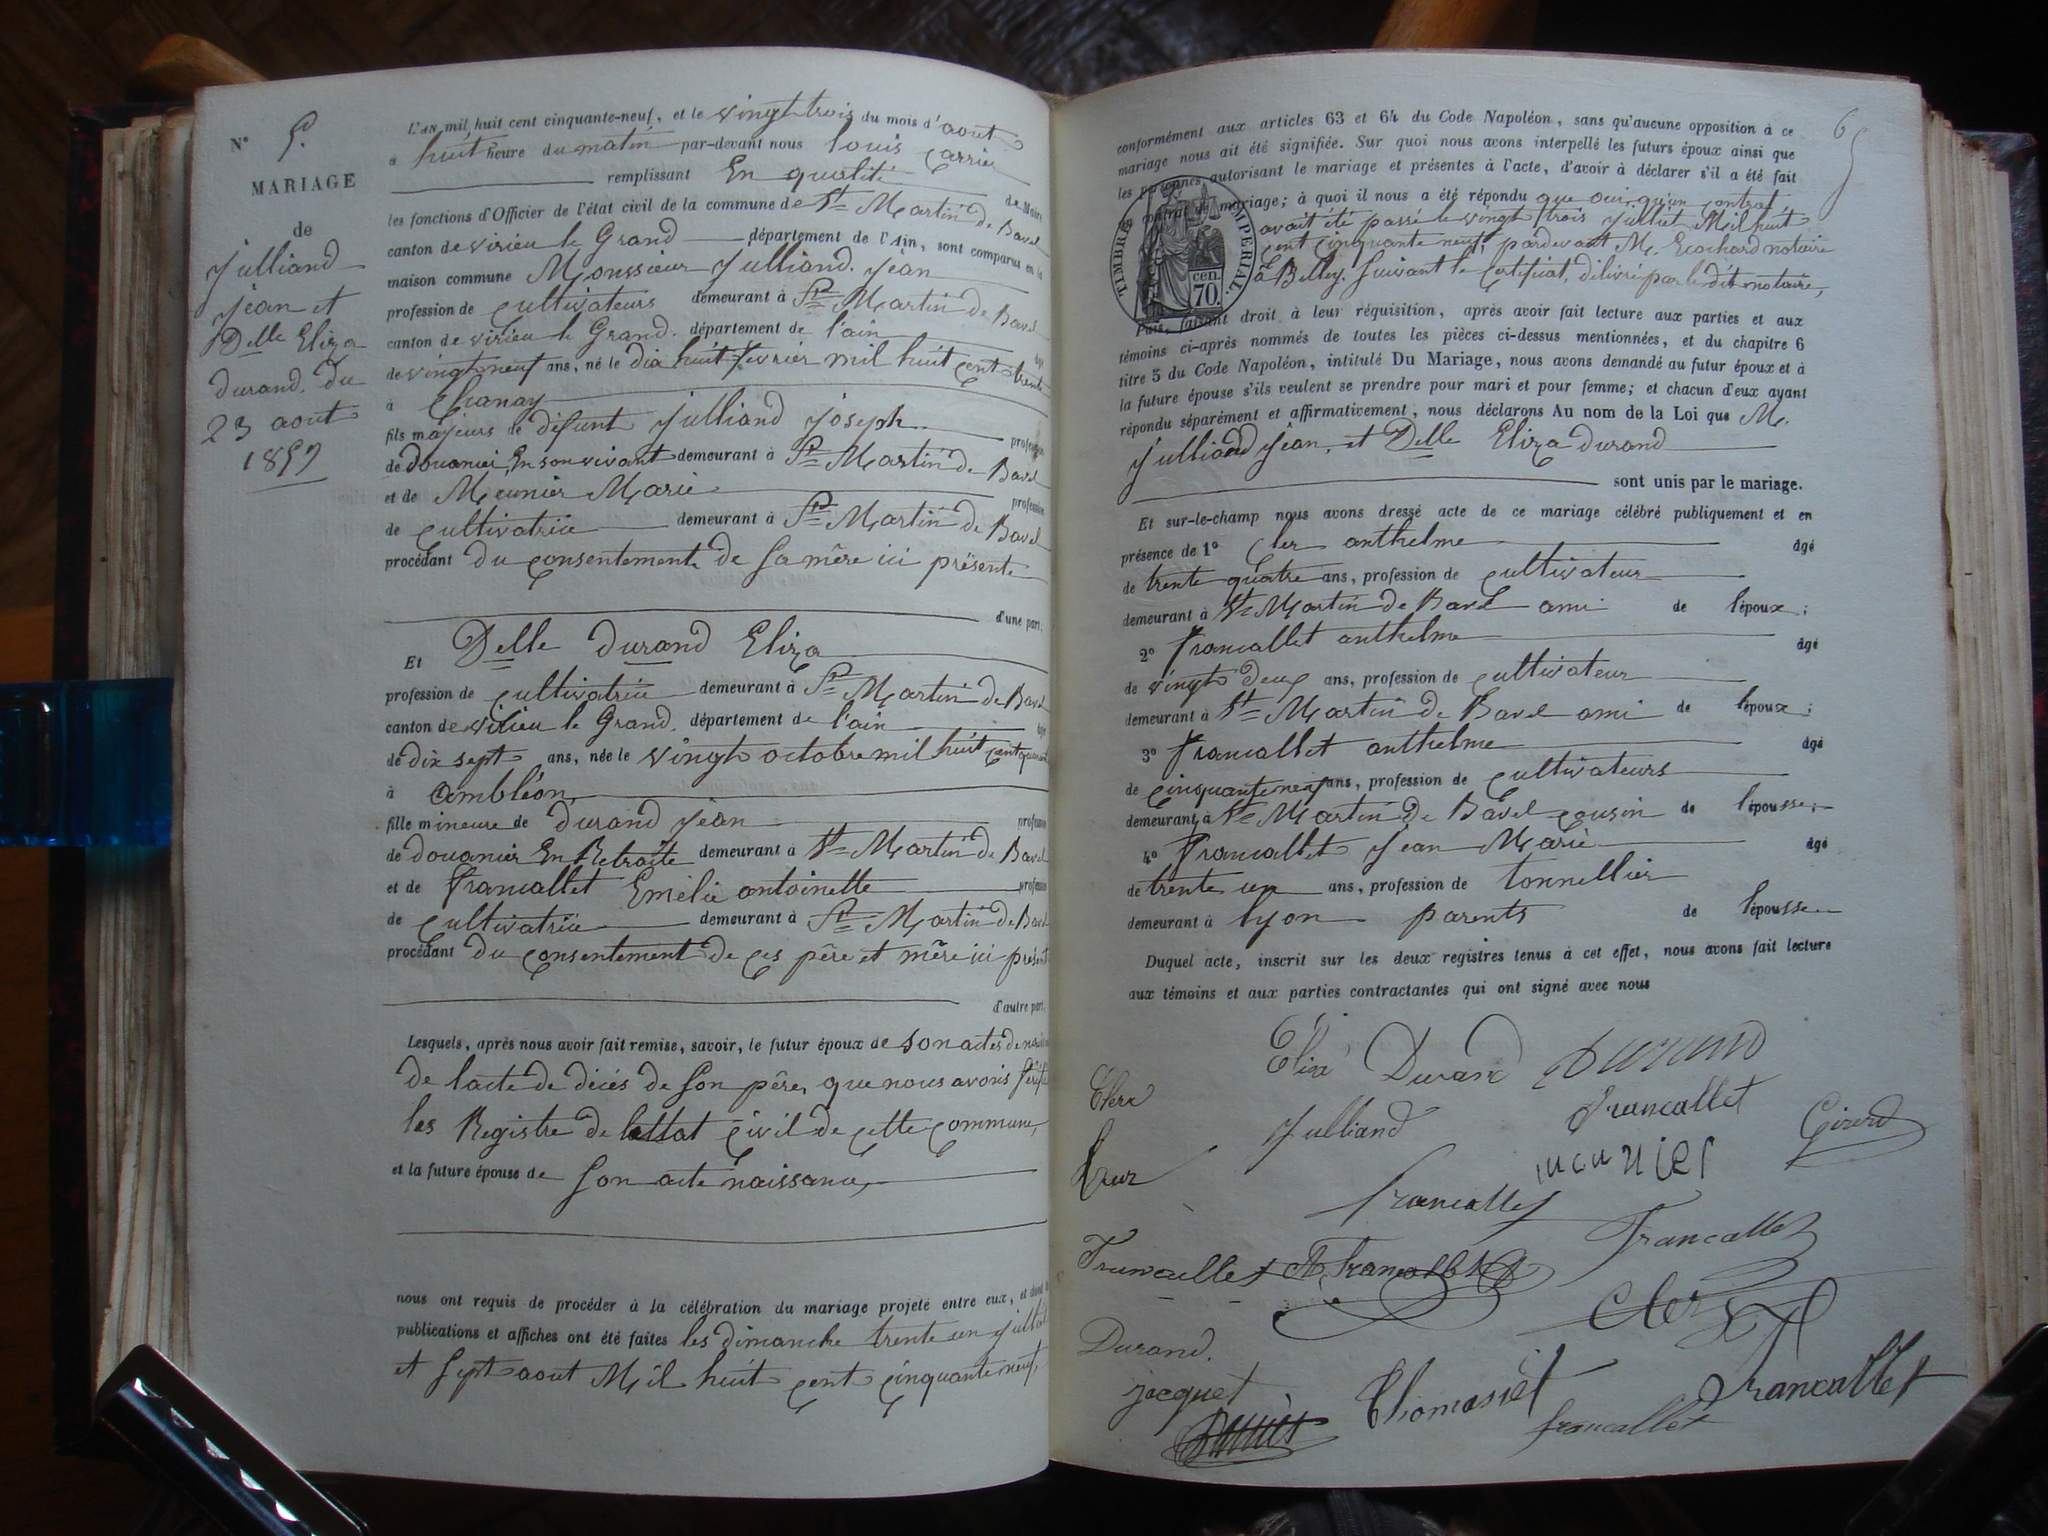 N° 5.
MARIAGE
de
Julliand
jean et
Delle Eliza
durand. du
23 aout
1859
L'AN mil huit cent cinquante-neuf, et le vingt trois du mois d'aout
à huit heure du matin par-devant nous louis Carrier
remplissant En qualité de Maire
les fonctions d'Officier de l'état civil de la commune de St Martin de Bavel
canton de virieu le Grand département de l'Ain, sont comparus en la
maison commune Monssieur Julliand. jean
profession de cultivateurs demeurant à St Martin de Bavel
canton de virieu le Grand. département de l'ain âgé
de vingt neuf ans, né le dix huit fevrier mil huit cent trente
à Chanay
fils majeurs de défunt julliand joseph profession
de douanier En son vivant demeurant à St Martin de Bavel
et de Meunier Marie profession
de cultivatrice demeurant à St Martin de Bavel
procédant du consentement de sa mère ici présente
d'une part.
Et Delle durand Eliza
profession de cultivatrice demeurant à St Martin de Bavel
canton de virieu le Grand. département de l'ain âgé
de dix sept ans, née le vingt octobre mil huit cent quarant
à ambléon
fille mineure de durand jean profession
de douanier En Retraite demeurant à St Martin de Bavel
et de francallet Emélie antoinette profession
de cultivatrice demeurant à St Martin de Bavel
procédant du consentement de ces père et mère ici présent
d'autre part.
Lesquels, après nous avoir fait remise, savoir, le futur époux de son actes de
de lacte de décés de son père, que nous avons
les Registre de lettat civil de cette commune,
et la future épouse de son acte naissance,
nous ont requis de procéder à la célébration du mariage projeté entre eux, et dont
publications et affiches ont été faites les dimanche trente un juillet
et sept aout Mil huit cent cinquante neuf,
65
conformément aux articles 63 et 64 du Code Napoléon, sans qu'aucune opposition à ce
mariage nous ait été signifiée. Sur quoi nous avons interpellé les futurs époux ainsi que
les personnes autorisant le mariage et présentes à l'acte, d'avoir à déclarer s'il a été fait
un contrat de mariage; à quoi il nous a été répondu que oui, qu'un contrat
avait été passé le vingt trois juillet Mil huit
cent cinquante neuf, pardevant M. Ecochard notaire
à Belley. suivant le certificat, délivré par le dit notaire,
TIMBRE IMPERIAL.
cen.
70.
Puis, faisant droit à leur réquisition, après avoir fait lecture aux parties et aux
témoins ci-après nommés de toutes les pièces ci-dessus mentionnées, et du chapitre 6
titre 5 du Code Napoléon, intitulé Du Mariage, nous avons demandé au futur époux et à
la future épouse s'ils veulent se prendre pour mari et pour femme; et chacun d'eux ayant
répondu séparément et affirmativement, nous déclarons Au nom de la Loi que M.
julliand jean, et Delle Eliza durand
sont unis par le mariage.
Et sur-le-champ nous avons dressé acte de ce mariage célébré publiquement et en
présence de 1° Cler anthelme âgé
de trente quatre ans, profession de cultivateur
demeurant à St Martin de Bavel ami de l'époux;
2° francallet anthelme âgé
de vingt deux ans, profession de cultivateur
demeurant à St Martin de Bavel ami de l'époux;
3° francallet anthelme âgé
de cinquante neuf ans, profession de cultivateurs
demeurant à St Martin de Bavel cousin de l'épousse;
4° francallet jean Marie âgé
de trente un ans, profession de tonnellier
demeurant à lyon parents de l'épousse
Duquel acte, inscrit sur les deux registres tenus à cet effet, nous avons fait lecture
aux témoins et aux parties contractantes qui ont signé avec nous
Eliza Durand Durand
Clerc Julliand francallet Girord
meunier
francallet Francallet
Francallet A francallet
Clerc
Durand.
jacquet Thomasset francallet
francallet